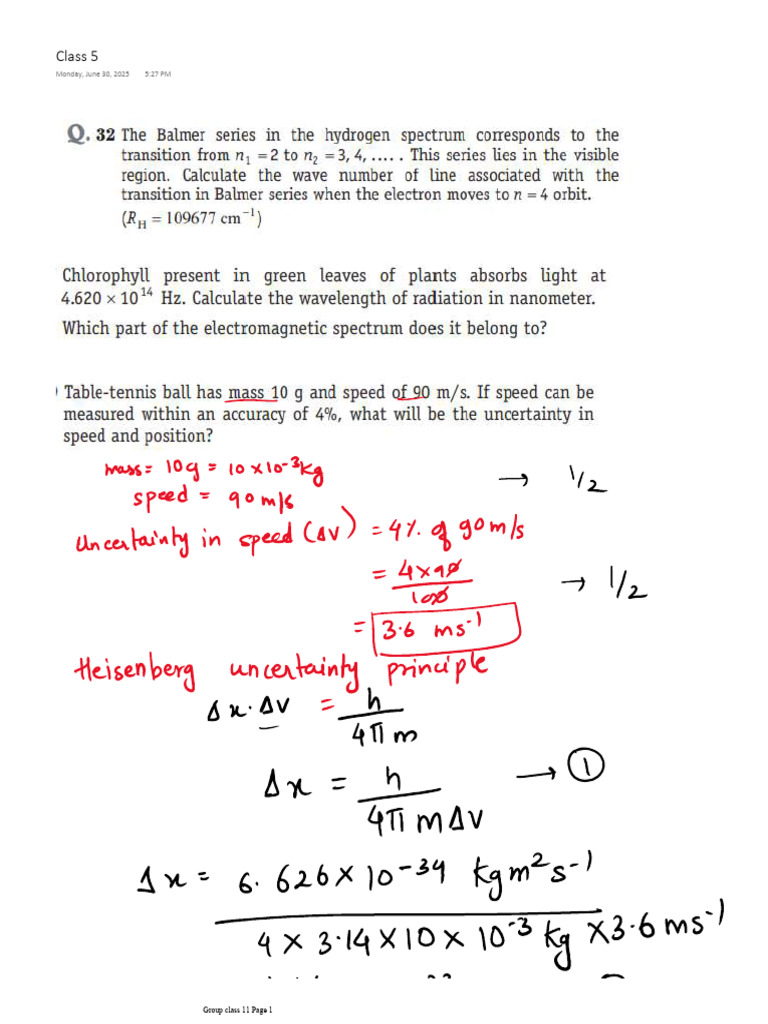 Class 5
Monday, June 30, 2025 5:27 PM
Q. 32 The Balmer series in the hydrogen spectrum corresponds to the
transition from n₁ = 2 to n₂ = 3, 4, ..... . This series lies in the visible
region. Calculate the wave number of line associated with the
transition in Balmer series when the electron moves to n = 4 orbit.
(R_H = 109677 cm⁻¹)
Chlorophyll present in green leaves of plants absorbs light at
4.620 × 10¹⁴ Hz. Calculate the wavelength of radiation in nanometer.
Which part of the electromagnetic spectrum does it belong to?
) Table-tennis ball has mass 10 g and speed of 90 m/s. If speed can be
measured within an accuracy of 4%, what will be the uncertainty in
speed and position?
mass = 10g = 10 × 10⁻³kg → 1/2
speed = 90 m/s
Uncertainty in speed (Δv) = 4% of 90 m/s
= 4×90/100 → 1/2
= 3.6 ms⁻¹
Heisenberg uncertainty principle
Δx·Δv = h/4πm
Δx = h/4πmΔv → 1
Δx = 6.626×10⁻³⁴ kgm²s⁻¹
4 × 3.14 × 10 × 10⁻³ kg × 3.6 ms⁻¹
Group class 11 Page 1